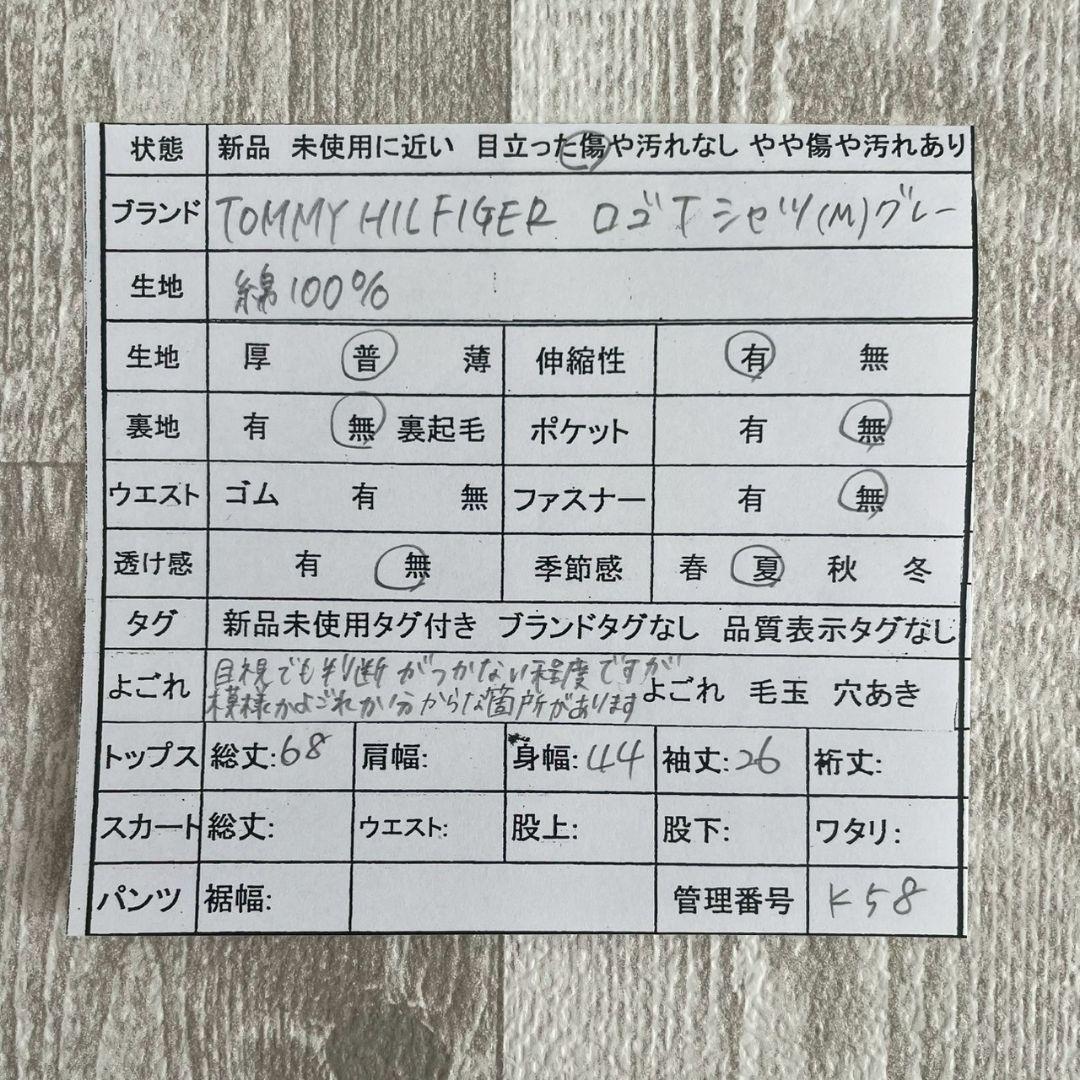 状態 新品 未使用に近い 目立った傷や汚れなし やや傷や汚れあり
ブランド TOMMY HILFIGER ロゴTシャツ(M)グレー
生地 綿100%
生地 厚 普 薄 伸縮性 有 無
裏地 有 無 裏起毛 ポケット 有 無
ウエスト ゴム 有 無 ファスナー 有 無
透け感 有 無 季節感 春 夏 秋 冬
タグ 新品未使用タグ付き ブランドタグなし 品質表示タグなし
よごれ 目視でも判断がつかない程度ですが
模様かよごれか分からな箇所があります よごれ 毛玉 穴あき
トップス 総丈:68 肩幅: 身幅:44 袖丈:26 裄丈:
スカート 総丈: ウエスト: 股上: 股下: ワタリ:
パンツ 裾幅: 管理番号 K58